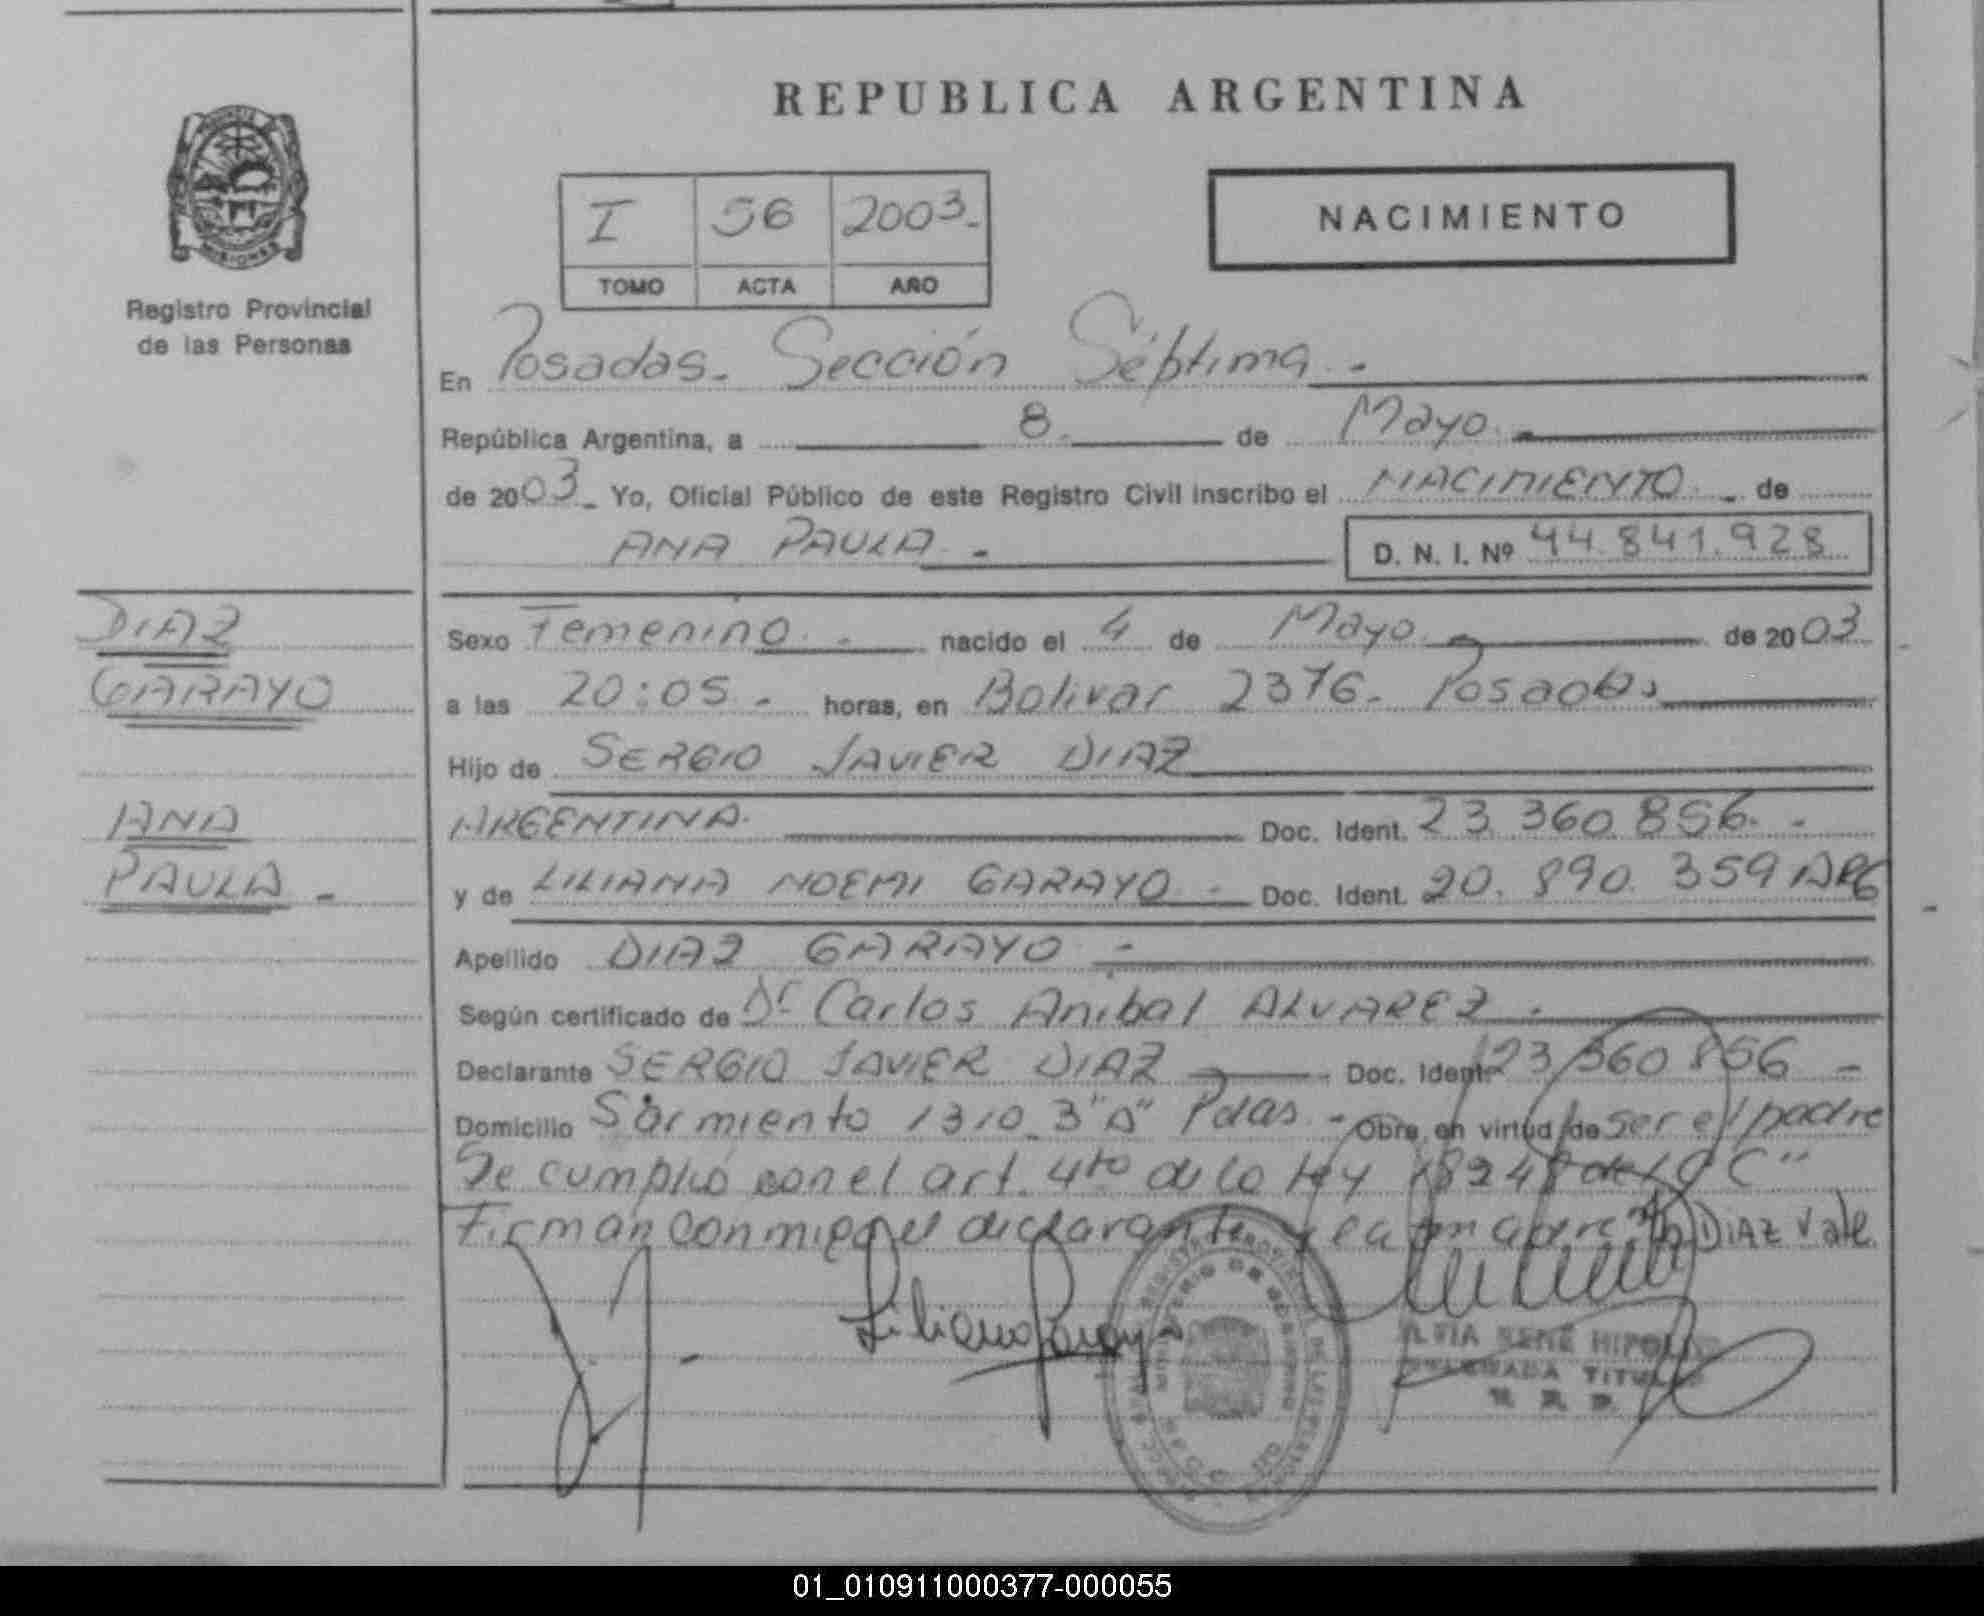 REPUBLICA ARGENTINA
Registro Provincial
de las Personas
I 56 2003.-
TOMO ACTA AÑO
NACIMIENTO
En Posadas. Sección Séptima.-
República Argentina, a 8.- de Mayo.-
de 2003.- Yo, Oficial Público de este Registro Civil inscribo el NACIMIENTO.- de
ANA PAULA.- D. N. I. Nº 44.841.928
DIAZ
GARAYO
ANA
PAULA.-
Sexo Femenino.- nacido el 4 de Mayo.- de 2003
a las 20:05.- horas, en Bolivar 2376. Posadas
Hijo de SERGIO JAVIER DIAZ
ARGENTINA. Doc. Ident. 23.360.856.-
y de LILIANA NOEMI GARAYO.- Doc. Ident. 20.890.359 ARG
Apellido DIAZ GARAYO.-
Según certificado de Dr Carlos Anibal ALVAREZ.
Declarante SERGIO JAVIER DIAZ Doc. Ident. 23.360.856 -
Domicilio Sarmiento 1310. 3"A" Pdas.- Obra en virtud de ser el padre
Se cumplió con el art. 4to de la ley 18248 del C C"
Firman conmigo el declarante y la madre. DIAZ Vale
Liliana Garayo
RENÉ HIPOLITO
TITULAR
01_010911000377-000055